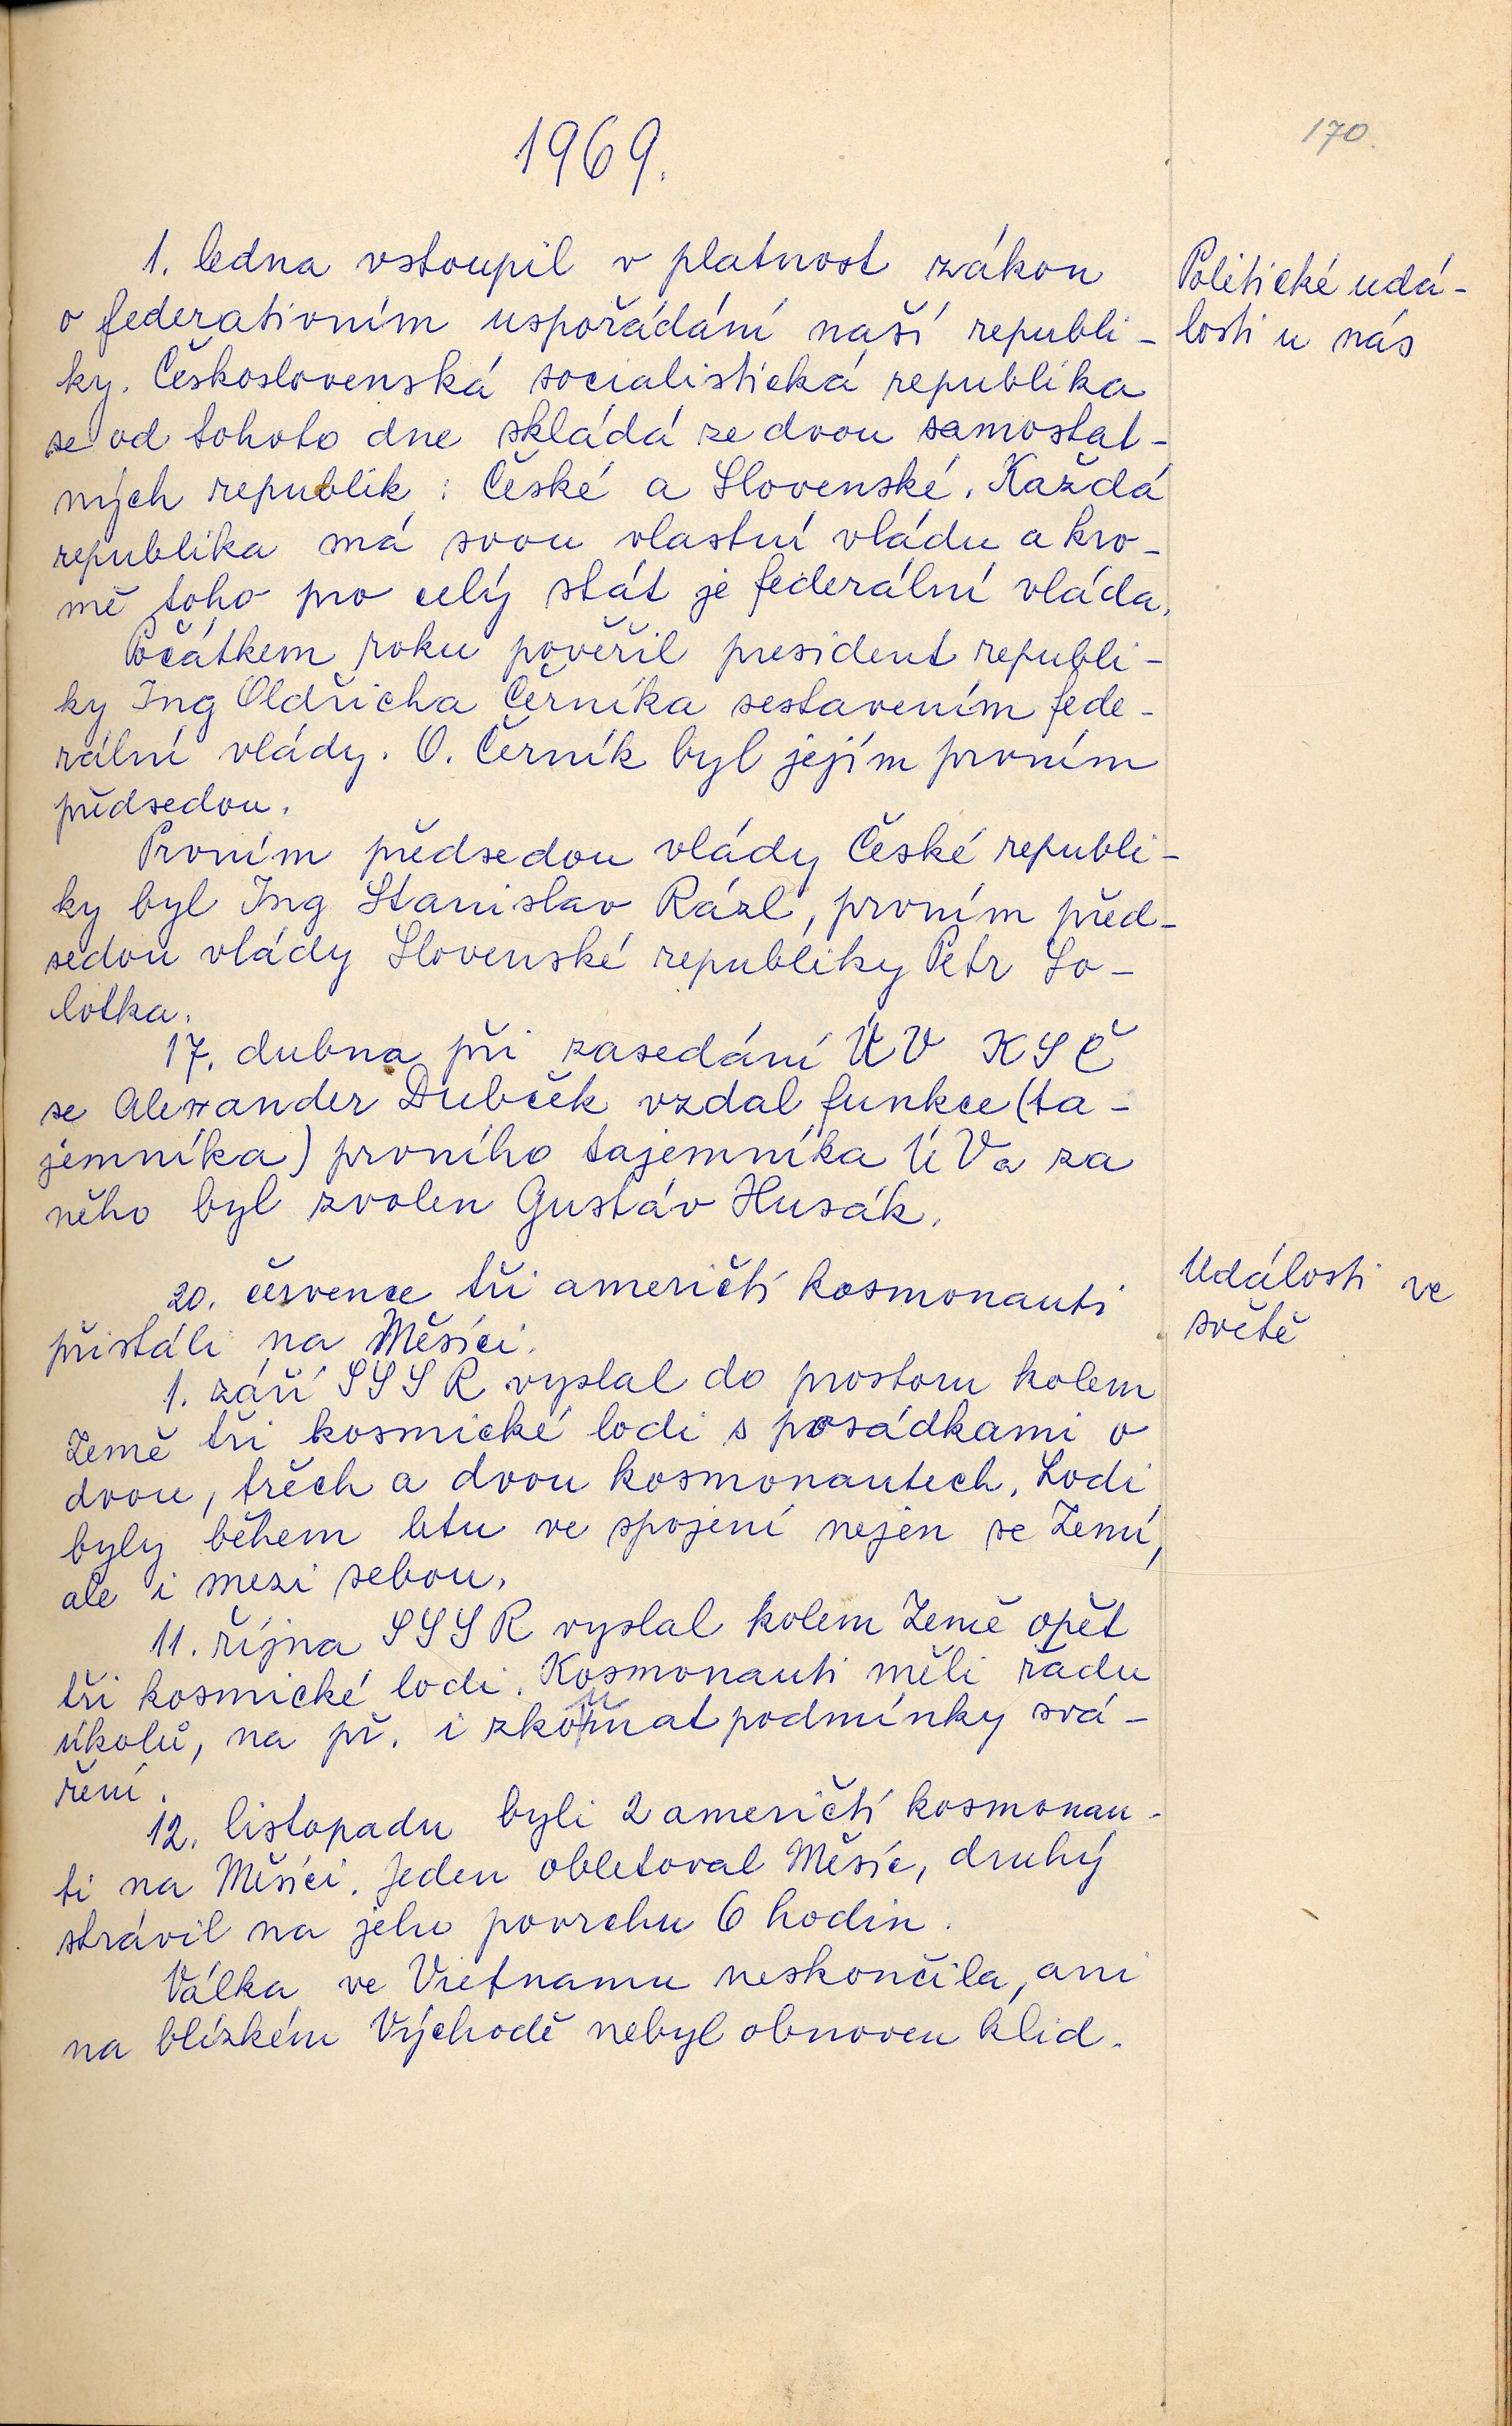 170.
1969.
1. ledna vstoupil v platnost zákon
Politické udá-
o federativním uspořádání naší republi-
losti u nás
ky. Československá socialistická republika
se od tohoto dne skládá ze dvou samostat-
ných republik: České a Slovenské. Každá
republika má svou vlastní vládu a kro-
mě toho pro celý stát je federální vláda.
Počátkem roku pověřil president republi-
ky Ing Oldřicha Černíka sestavením fede-
rální vlády. O. Černík byl jejím prvním
předsedou.
Prvním předsedou vlády České republi-
ky byl Ing Stanislav Rázl, prvním před-
sedou vlády Slovenské republiky Petr So-
lotka.
17. dubna při zasedání ÚV KSČ
se Alexander Dubček vzdal funkce (ta-
jemníka) prvního tajemníka ÚV a za
něho byl zvolen Gustáv Husák.
20. července tři američtí kosmonauti
Události ve
přistáli na Měsíci.
světě
1. září SSSR vyslal do prostoru kolem
Země tři kosmické lodi s posádkami o
dvou, třech a dvou kosmonautech. Lodi
byly během letu ve spojení nejen se Zemí,
ale i mezi sebou.
11. října SSSR vyslal kolem Země opět
tři kosmické lodi. Kosmonauti měli řadu
úkolů, na př. i zkoumat podmínky svá-
ření.
12. listopadu byli 2 američtí kosmonau-
ti na Měsíci. Jeden obletoval Měsíc, druhý
strávil na jeho povrchu 6 hodin.
Válka ve Vietnamu neskončila, ani
na blízkém Východě nebyl obnoven klid.